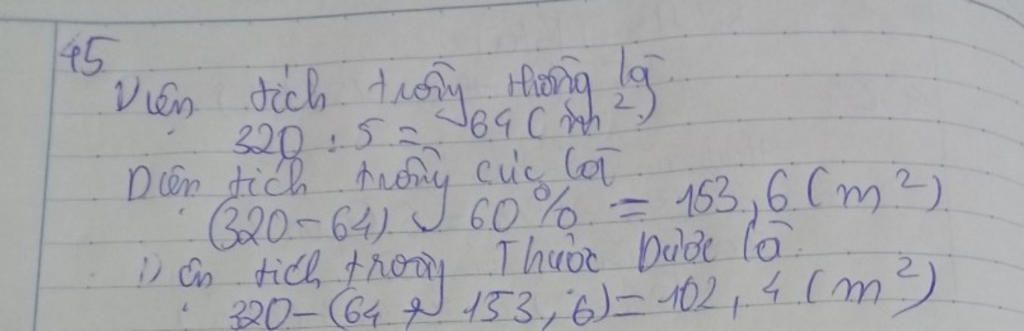 45
Diện tích trồng thông là
320 : 5 = 64 ( m²)
Diện tích trồng cúc là
(320 - 64) 60% = 153,6 ( m²)
Diện tích trồng Thuốc Dược là
320 - (64 + 153,6) = 102,4 ( m²)